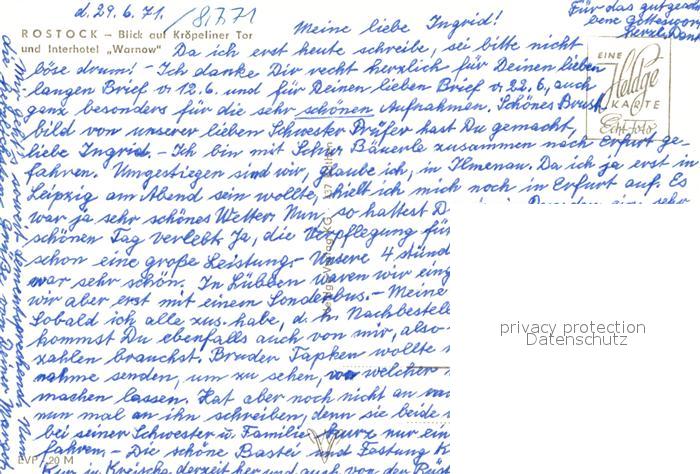 d. 29.6.71. /8.7.71
Für das gutgend
Meine liebe Ingrid!
bene Gotteswort
herzl. Dank
ROSTOCK – Blick auf Kröpeliner Tor
und Interhotel „Warnow"
Da ich erst heute schreibe, sei bitte nicht
böse drum! – Ich danke Dir recht herzlich für Deinen lieben
langen Brief v. 12.6. und für Deinen lieben Brief v. 22.6., auch
ganz besonders für die sehr schönen Aufnahmen. Schönes Brust
bild von unserer lieben Schwester Prüfer hast Du gemacht,
liebe Ingrid. – Ich bin mit Schw. Bäuerle zusammen nach Erfurt ge-
fahren. Umgestiegen sind wir, glaube ich, in Ilmenau. Da ich ja erst in
Leipzig am Abend sein wollte, hielt ich mich noch in Erfurt auf. Es
war ja sehr schönes Wetter. Nun, so hattest D
schönen Tag verlebt. Ja, die Verpflegung für
schon eine große Leistung. Unsere 4 stünd
war sehr schön. In Lübben waren wir eing
wir aber erst mit einem Sonderbus. – Meine
Sobald ich alle zus. habe, d. h. Nachbestelle
kommst Du ebenfalls auch von mir, also
zahlen brauchst. Bruder Tapken wollte
nahme senden, um zu sehen, von welcher
machen lassen. Hat aber noch nicht an
nun mal an ihn schreiben, denn sie beide
bei seiner Schwester u. Familie kurz nur ein
fahren. – Die schöne Bastei und Festung K
Kur in Kreischa derzeit her und auch von der Rüst
EINE
Heldge
KARTE
Echt Foto
EVP –.20 M
privacy protection
Datenschutz